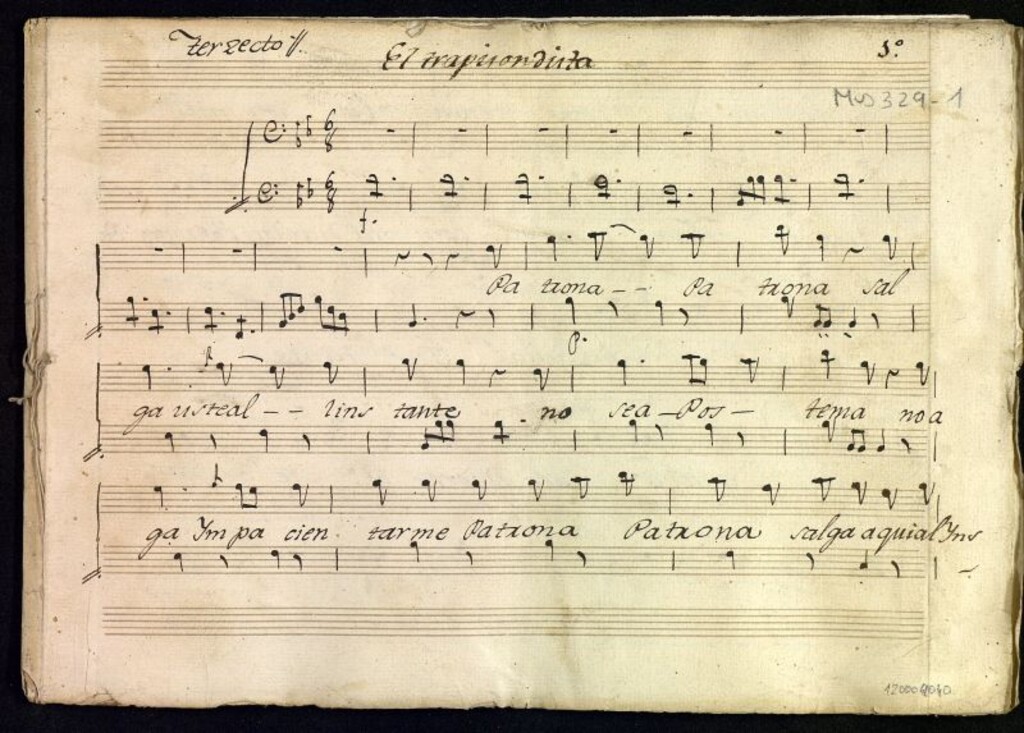 Terzecto //.
El trapisondista
1º
Mus 329-1
f.
Pa trona -- Pa trona sal
p.
ga usteal -- lins tante no sea - Pos - tema no a
ga Ympa cien tarme Patrona Patrona salga aquial Yns